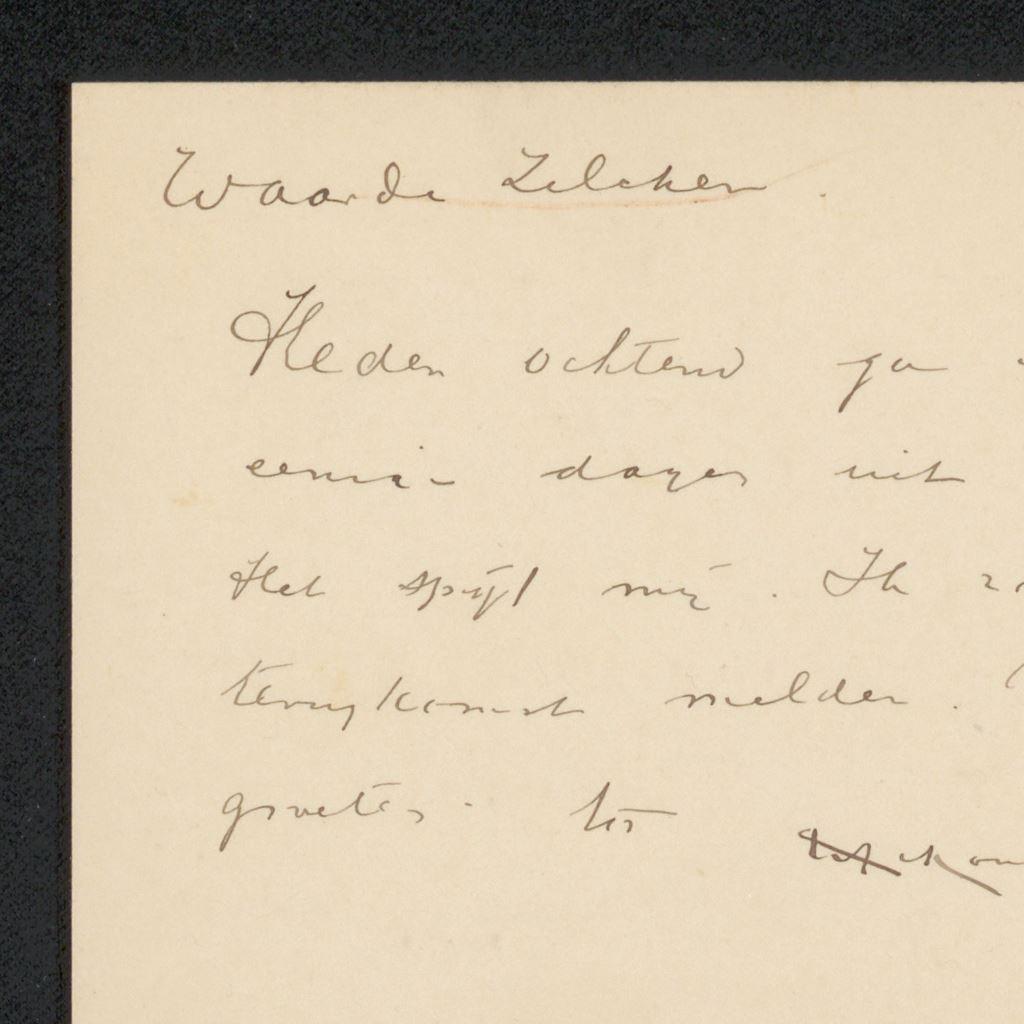 Waarde Zilcken.
Heden ochtend ga
eenige dagen uit
Het spijt mij. Ik
terugkomst melden.
groeten. tot